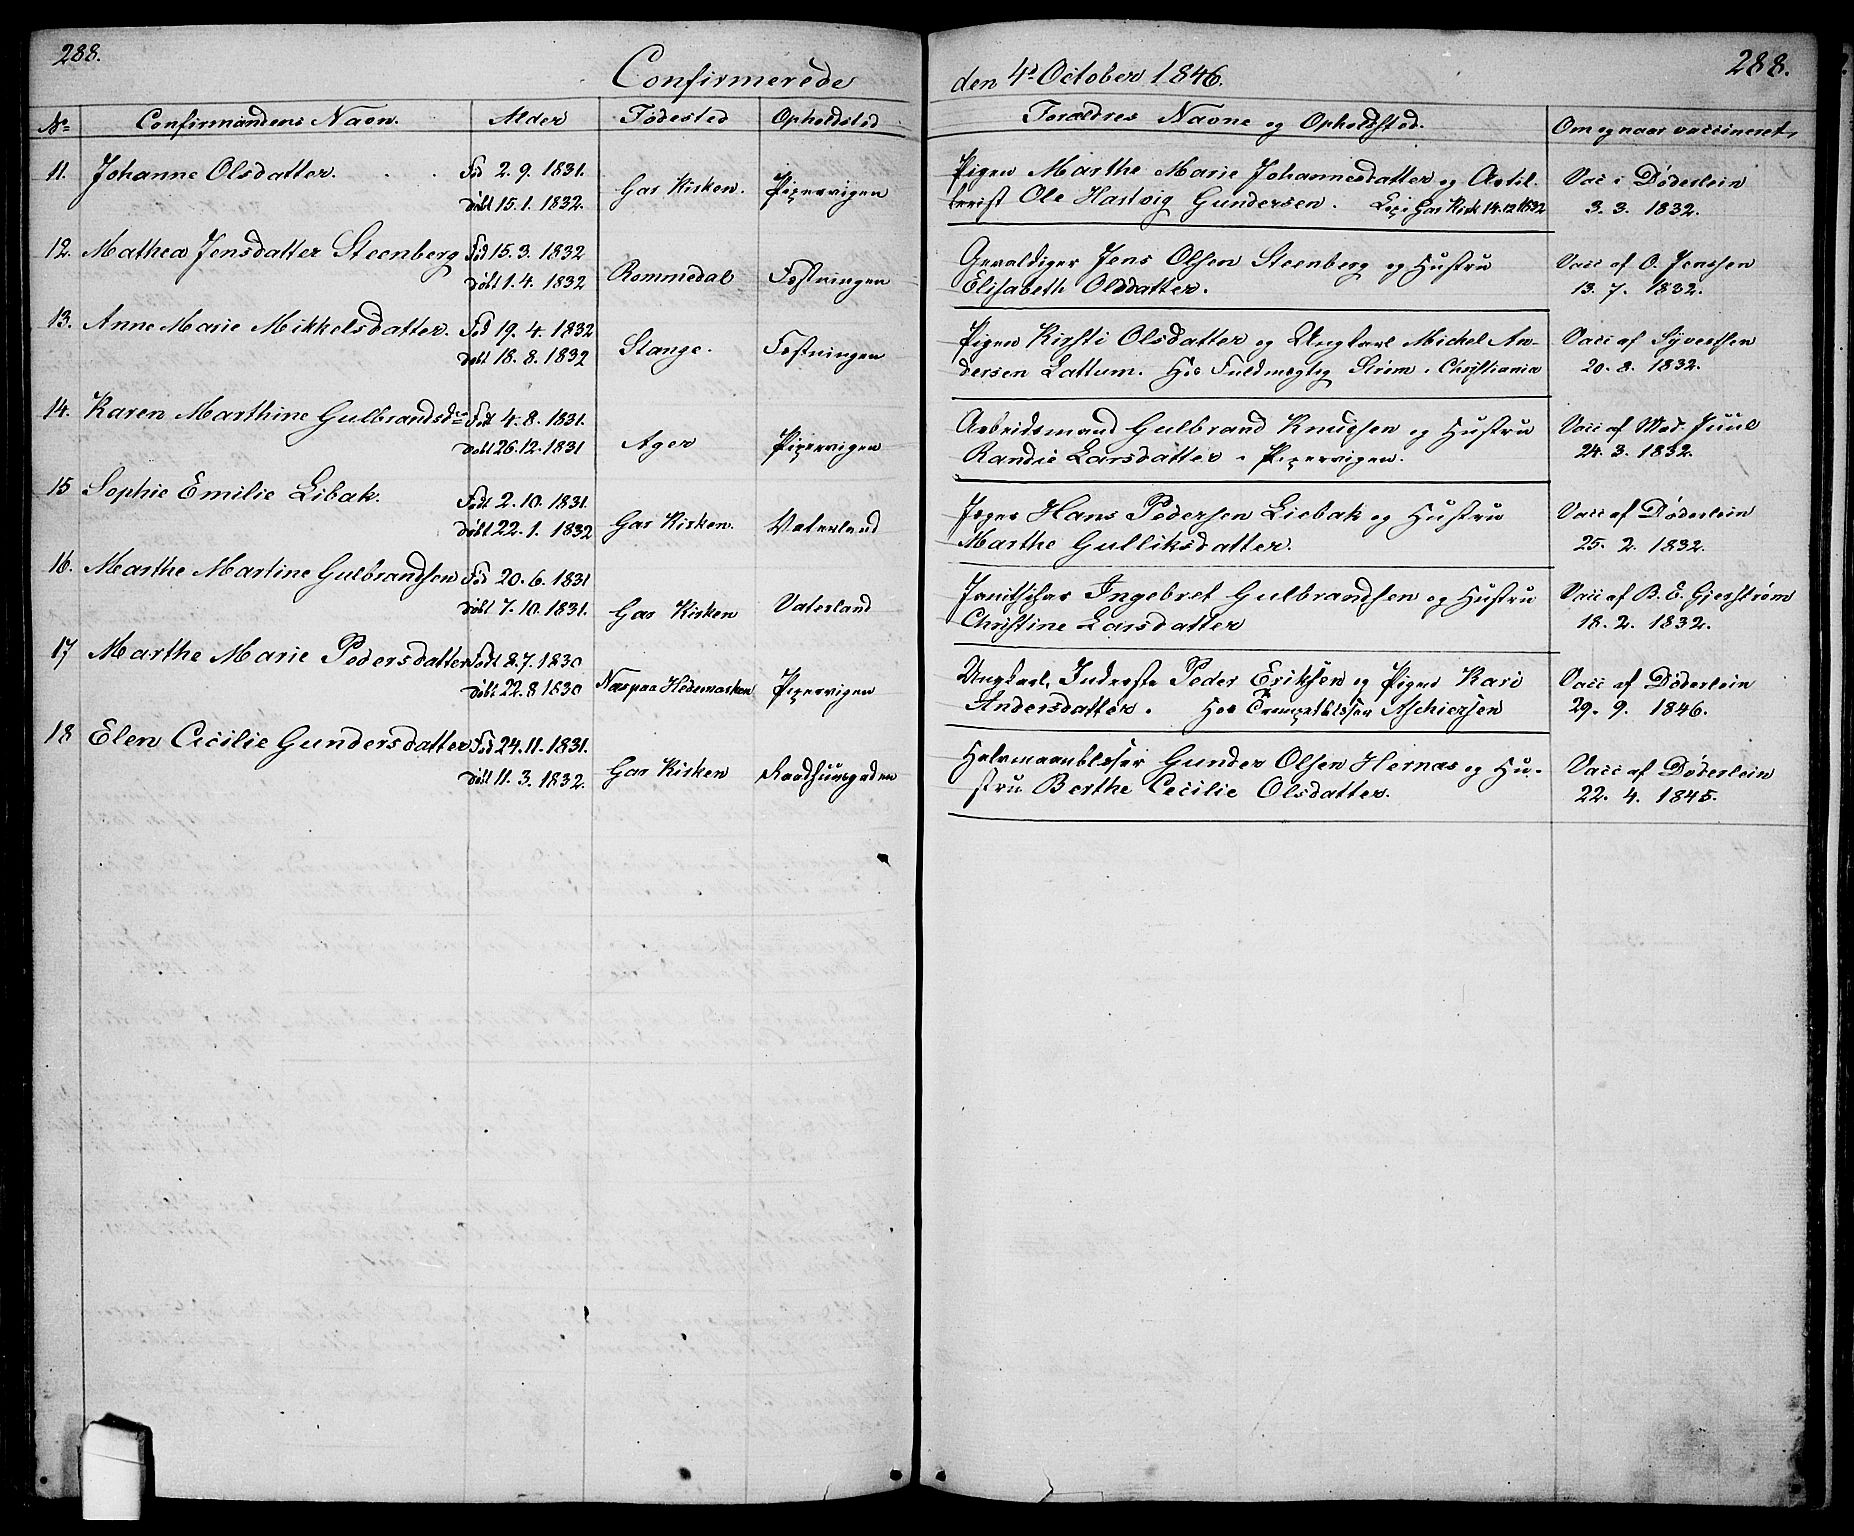 288.
Confirmerede
den 4de October 1846.
288.
No
Confirmandens Navn.
Alder
Fødested
Opholdsted
Forældres Navne og Opholdsted.
Om og naar vaccineret,
11. Johanne Olsdatter. Fød 2. 9. 1831.
døbt 15. 1. 1832. Gar Kirken. Pipervigen
Pigen Marthe Marie Johannesdatter og Artil-
lerist Ole Hartvig Gundersen. Leg i Gar Kirk 14.12 1832
Vac i Døderlein
3. 3. 1832.
12. Mathea Jensdatter Steenberg Fød 15. 3. 1832
døbt 1. 4. 1832 Rommedal Festningen
Gevaldiger Jens Olsen Steenberg og Hustru
Elisabeth Olsdatter.
Vacc af O. Jenssen
13. 7. 1832.
13. Anne Marie Mikkelsdatter. Fød 19. 4. 1832
døbt 18. 8. 1832 Stange. Festningen
Pigen Kirsti Olsdatter og Ungkarl Michel An-
dersen Lattum. Hos Fuldmægtig Strøm i Christiania
Vacc af Syvertsen
20. 8. 1832.
14. Karen Marthine Gulbrandsdtr Født 4. 8. 1831.
døbt 26. 12. 1831 Ager Pipervigen
Arbeidsmand Gulbrand Knudsen og Hustru
Randie Larsdatter i Pipervigen.
Vacc af Mad. Juul
24. 3. 1832.
15 Sophie Emilie Libak. Født 2. 10. 1831.
døbt 22. 1. 1832 Gar Kirken. Vaterland
Jæger Hans Pedersen Liebak og Hustru
Marthe Gulliksdatter.
Vacc af Døderlein
25. 2. 1832.
16. Marthe Martine Gulbrandsen Fød 20. 6. 1831
døbt 7. 10. 1831. Gar Kirken Vaterland
Janitschar Ingebret Gulbrandsen og Hustru
Christine Larsdatter
Vacc af B. E. Gjerstrøm
18. 2. 1832.
17 Marthe Marie Pedersdatter Født 8. 7. 1830
døbt 22. 8 1830 Næs paa Hedemarken Pipervigen
Ungkarl, Inderste Peder Eriksen og Pigen Kari
Andersdatter. Hos Trompetblæser Aschiersen
Vacc af Døderlein
29. 9. 1846.
18 Elen Cicilie Gundersdatter Fød 24. 11. 1831.
døbt 11. 3. 1832. Gar Kirken Raadhuusgaden
Halvmaanblæser Gunder Olsen Hernæs og Hu-
stru Berthe Cecilie Olsdatter.
Vacc af Døderlein
22. 4. 1845.